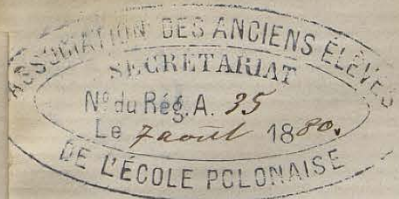 ASSOCIATION DES ANCIENS ÉLÈVES
SECRÉTARIAT
No du Rég. A. 35
Le 7 aout 1880.
DE L'ÉCOLE POLONAISE